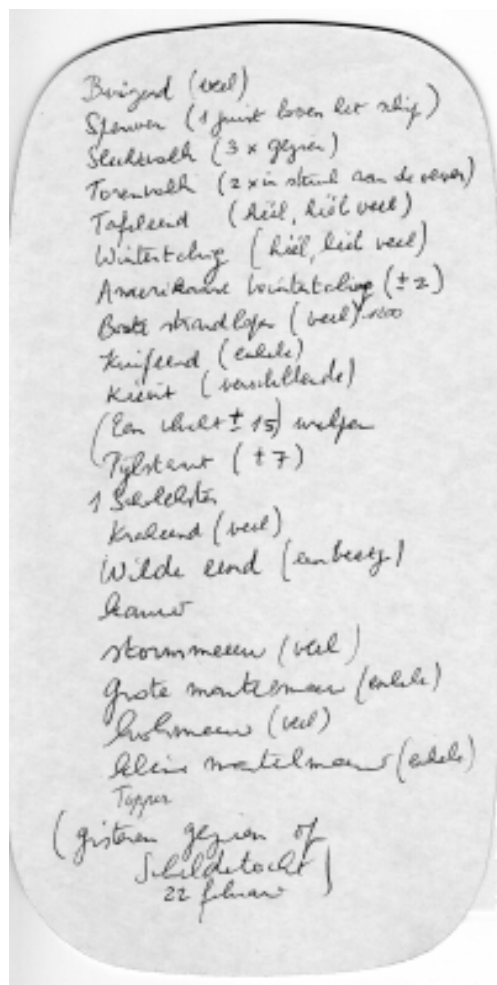 Buizerd (veel)
Sperwer (1 juist boven het schip)
Slechtvalk (3 x gezien)
Torenvalk (2 x in struik aan de oever)
Tafeleend (héél, héél veel)
Wintertaling (héél, héél veel)
Amerikaanse wintertaling (± 2)
Bonte strandloper (veel)
Kuifeend (enkele)
Kievit (verschillende)
(Een vlucht ± 15) wulpen
Pijlstaart (± 7)
1 Scholekster
Krakeend (veel)
Wilde eend (een beetje)
kauw
stormmeeuw (veel)
grote mantelmeeuw (enkele)
kokmeeuw (veel)
kleine mantelmeeuw (enkele)
Topper
(gisteren gezien op
Scheldetocht)
22 februari